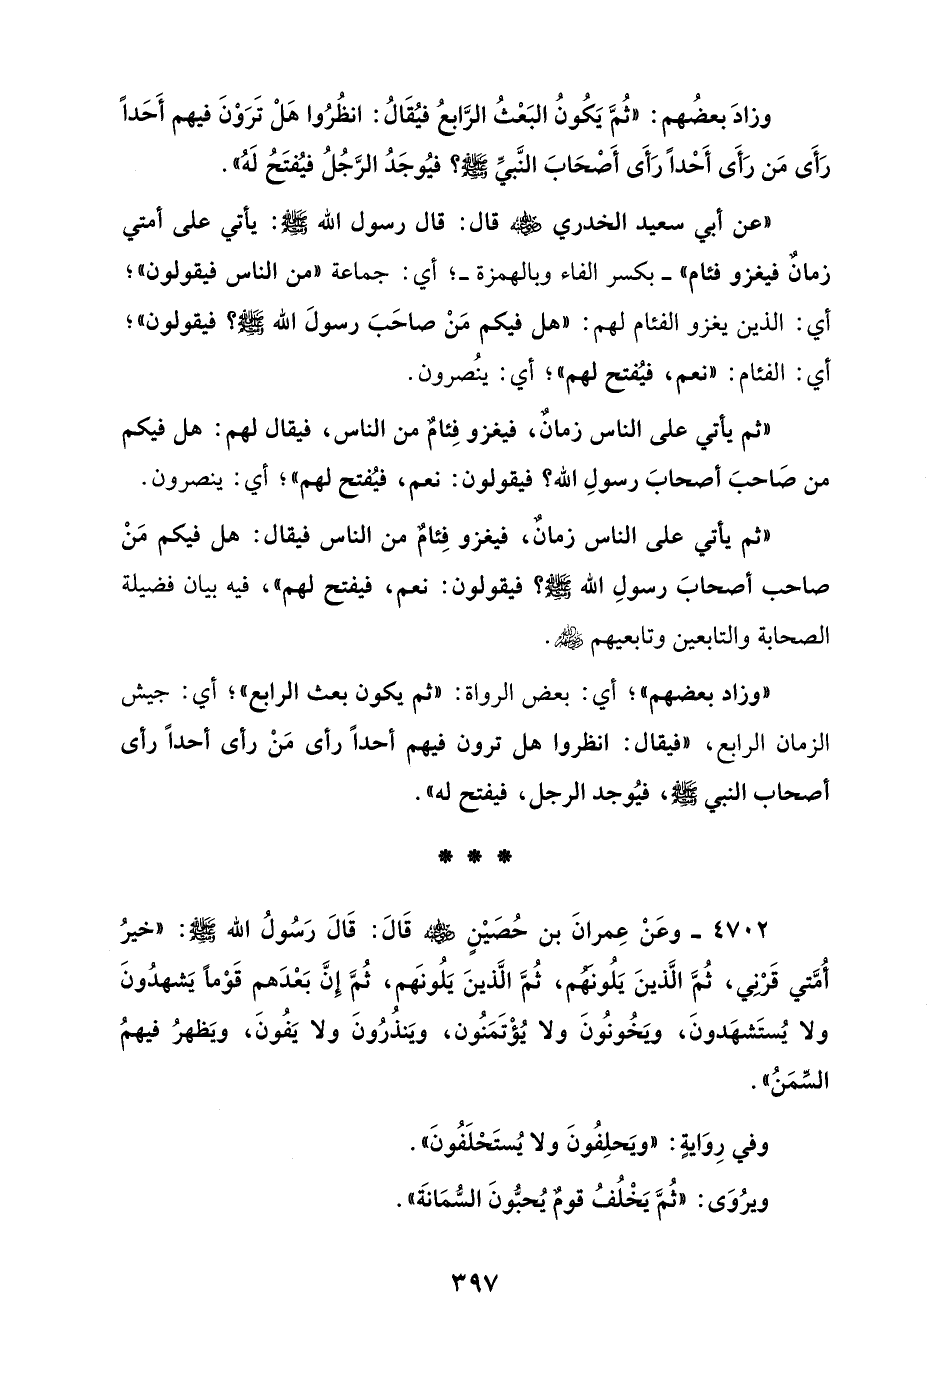 وزادَ بعضُهم: «ثُمَّ يَكُونُ البَعْثُ الرَّابعُ فيُقَالُ: انظُرُوا هَلْ تَرَوْنَ فيهم أَحَداً
رَأَى مَن رَأَى أَحْداً رَأَى أَصْحَابَ النَّبيِّ ﷺ؟ فيُوجَدُ الرَّجُلُ فيُفتَحُ لَهُ».
«عن أبي سعيد الخدري ﵁ قال: قال رسول الله ﷺ: يأتي على أمتي
زمانٌ فيغزو فئام» ـ بكسر الفاء وبالهمزة ـ؛ أي: جماعة «من الناس فيقولون»؛
أي: الذين يغزو الفئام لهم: «هل فيكم مَنْ صاحَبَ رسولَ الله ﷺ؟ فيقولون»؛
أي: الفئام: «نعم، فيُفتح لهم»؛ أي: يُنصرون.
«ثم يأتي على الناس زمانٌ، فيغزو فِئامٌ من الناس، فيقال لهم: هل فيكم
من صَاحبَ أصحابَ رسولِ الله؟ فيقولون: نعم، فيُفتح لهم»؛ أي: ينصرون.
«ثم يأتي على الناس زمانٌ، فيغزو فِئامٌ من الناس فيقال: هل فيكم مَنْ
صاحب أصحابَ رسولِ الله ﷺ؟ فيقولون: نعم، فيفتح لهم»، فيه بيان فضيلة
الصحابة والتابعين وتابعيهم ﵃.
«وزاد بعضهم»؛ أي: بعض الرواة: «ثم يكون بعث الرابع»؛ أي: جيش
الزمان الرابع، «فيقال: انظروا هل ترون فيهم أحداً رأى مَنْ رأى أحداً رأى
أصحاب النبي ﷺ، فيُوجد الرجل، فيفتح له».
* * *
٤٧٠٢ ـ وعَنْ عِمرانَ بن حُصَيْنٍ ﵁ قَالَ: قَالَ رَسُولُ الله ﷺ: «خيرُ
أُمَّتي قَرْنِي، ثُمَّ الَّذينَ يَلُونَهُم، ثُمَّ الَّذينَ يَلُونَهم، ثُمَّ إنَّ بَعْدَهم قَوْماً يَشهدُونَ
ولا يُستَشهَدونَ، ويَخُونُونَ ولا يُؤْتَمَنُون، ويَنذُرُونَ ولا يَفُونَ، ويَظهرُ فيهمُ
السِّمَنُ».
وفي رِوَايةٍ: «ويَحلِفُونَ ولا يُستَحْلَفُونَ».
ويرُوَى: «ثُمَّ يَخْلُفُ قومٌ يُحبُّونَ السُّمَانَةَ».
٣٩٧